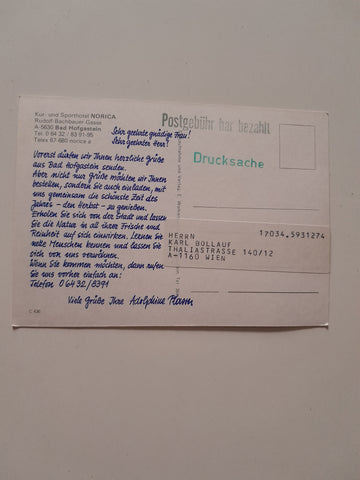 Kur- und Sporthotel NORICA
Rudolf-Bachbauer-Gasse
A-5630 Bad Hofgastein
Tel. 0 64 32 / 83 91-95
Telex 67-680 norica a
Postgebühr bar bezahlt
Drucksache
Sehr geehrte gnädige Frau!
Sehr geehrter Herr!
Vorerst dürfen wir Ihnen herzliche Grüße
aus Bad Hofgastein senden.
Aber nicht nur Grüße möchten wir Ihnen
senden, sondern Sie auch einladen, mit
uns gemeinsam die schönste Zeit des
Jahres - den Herbst - zu genießen.
Erholen Sie sich von der Stadt und lassen
Sie die Natur in all ihrer Frische und
Reinheit auf sich einwirken. Lernen Sie
nette Menschen kennen und lassen Sie
sich von uns verwöhnen.
Wenn Sie kommen möchten, dann rufen
Sie uns vorher einfach an:
Telefon 06432/8391
Viele Grüße Ihre Adolphine
17034.5931274
HERRN
KARL BOLLAUF
THALIASTRASSE 140/12
A-1160 WIEN
C 430